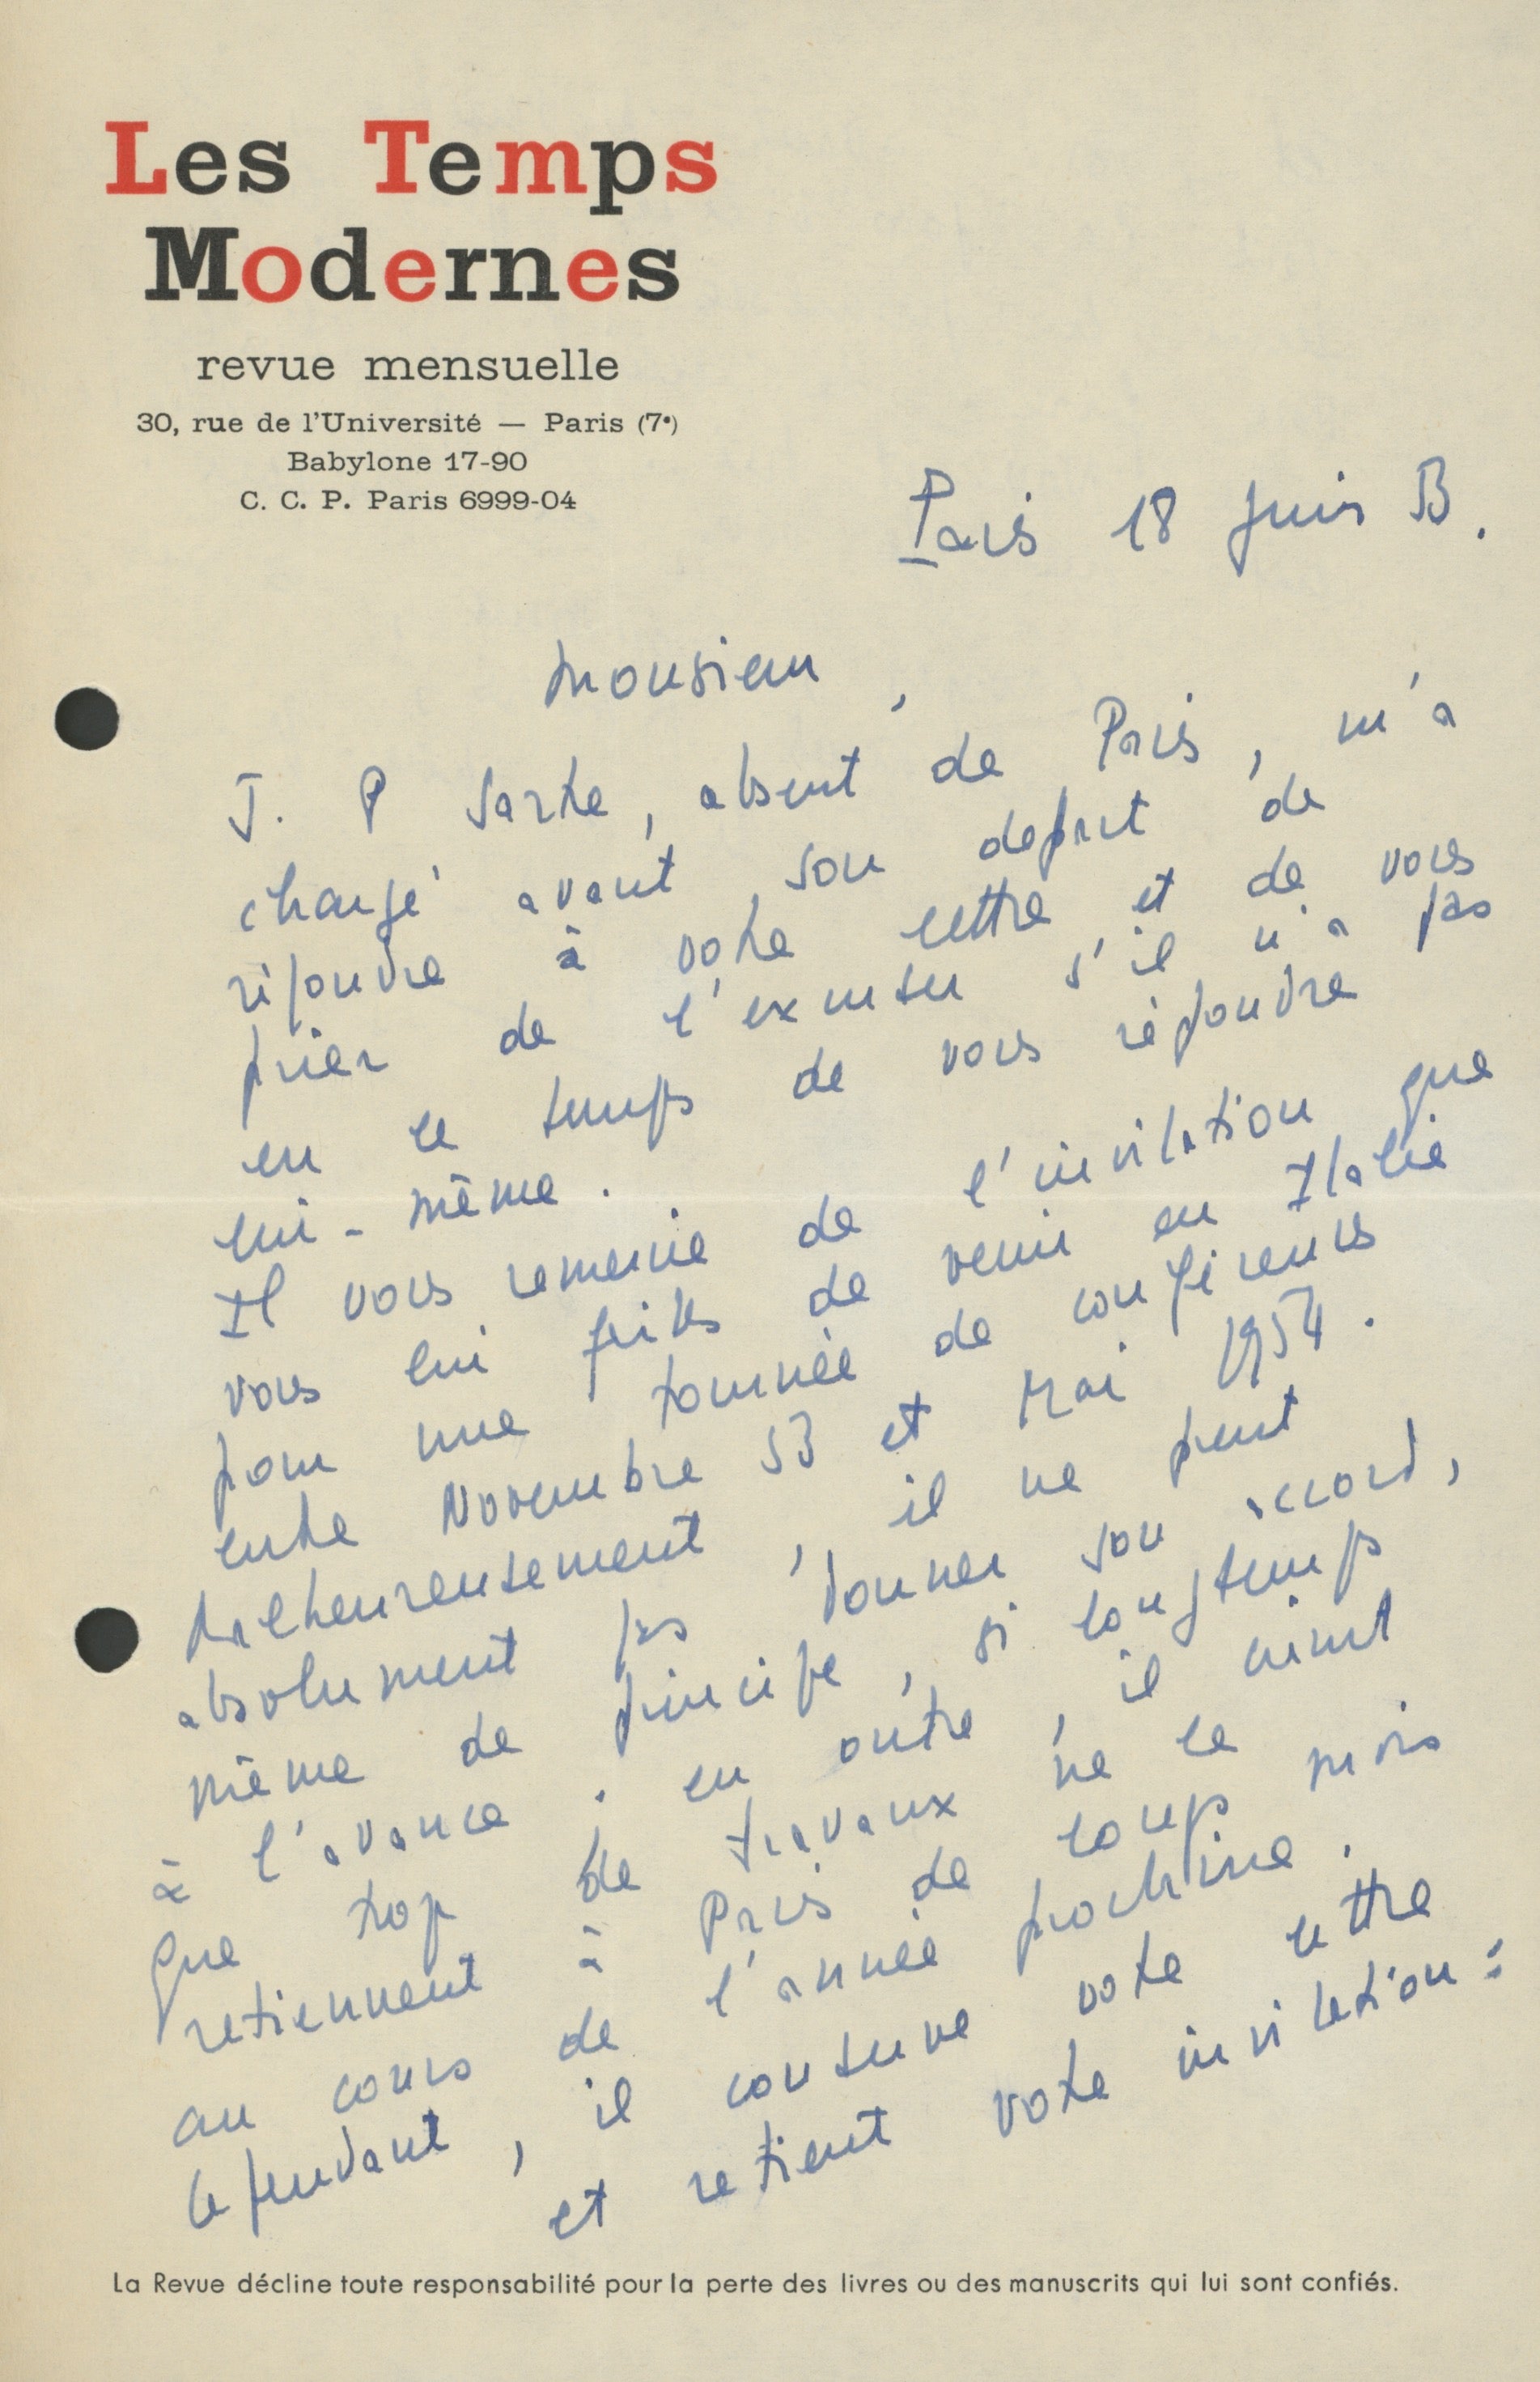 Les Temps
Modernes
revue mensuelle
30, rue de l'Université — Paris (7e)
Babylone 17-90
C. C. P. Paris 6999-04
Paris 18 Juin 53.
Monsieur,
J. P Sartre, absent de Paris, m'a
chargé avant son depart de
répondre à votre lettre et de vous
prier de l'excuser s'il n'a pas
eu le temps de vous répondre
lui-même.
Il vous remercie de l'invitation que
vous lui faites de venir en Italie
pour une tournée de conférences
entre Novembre 53 et Mai 1954.
Malheureusement, il ne peut
absolument pas donner son accord,
même de principe, si longtemps
à l'avance. en outre, il craint
que trop de travaux ne le
retiennent à Paris de longs mois
au cours de l'année prochaine.
Cependant, il conserve votre lettre
et retient votre invitation :
La Revue décline toute responsabilité pour la perte des livres ou des manuscrits qui lui sont confiés.